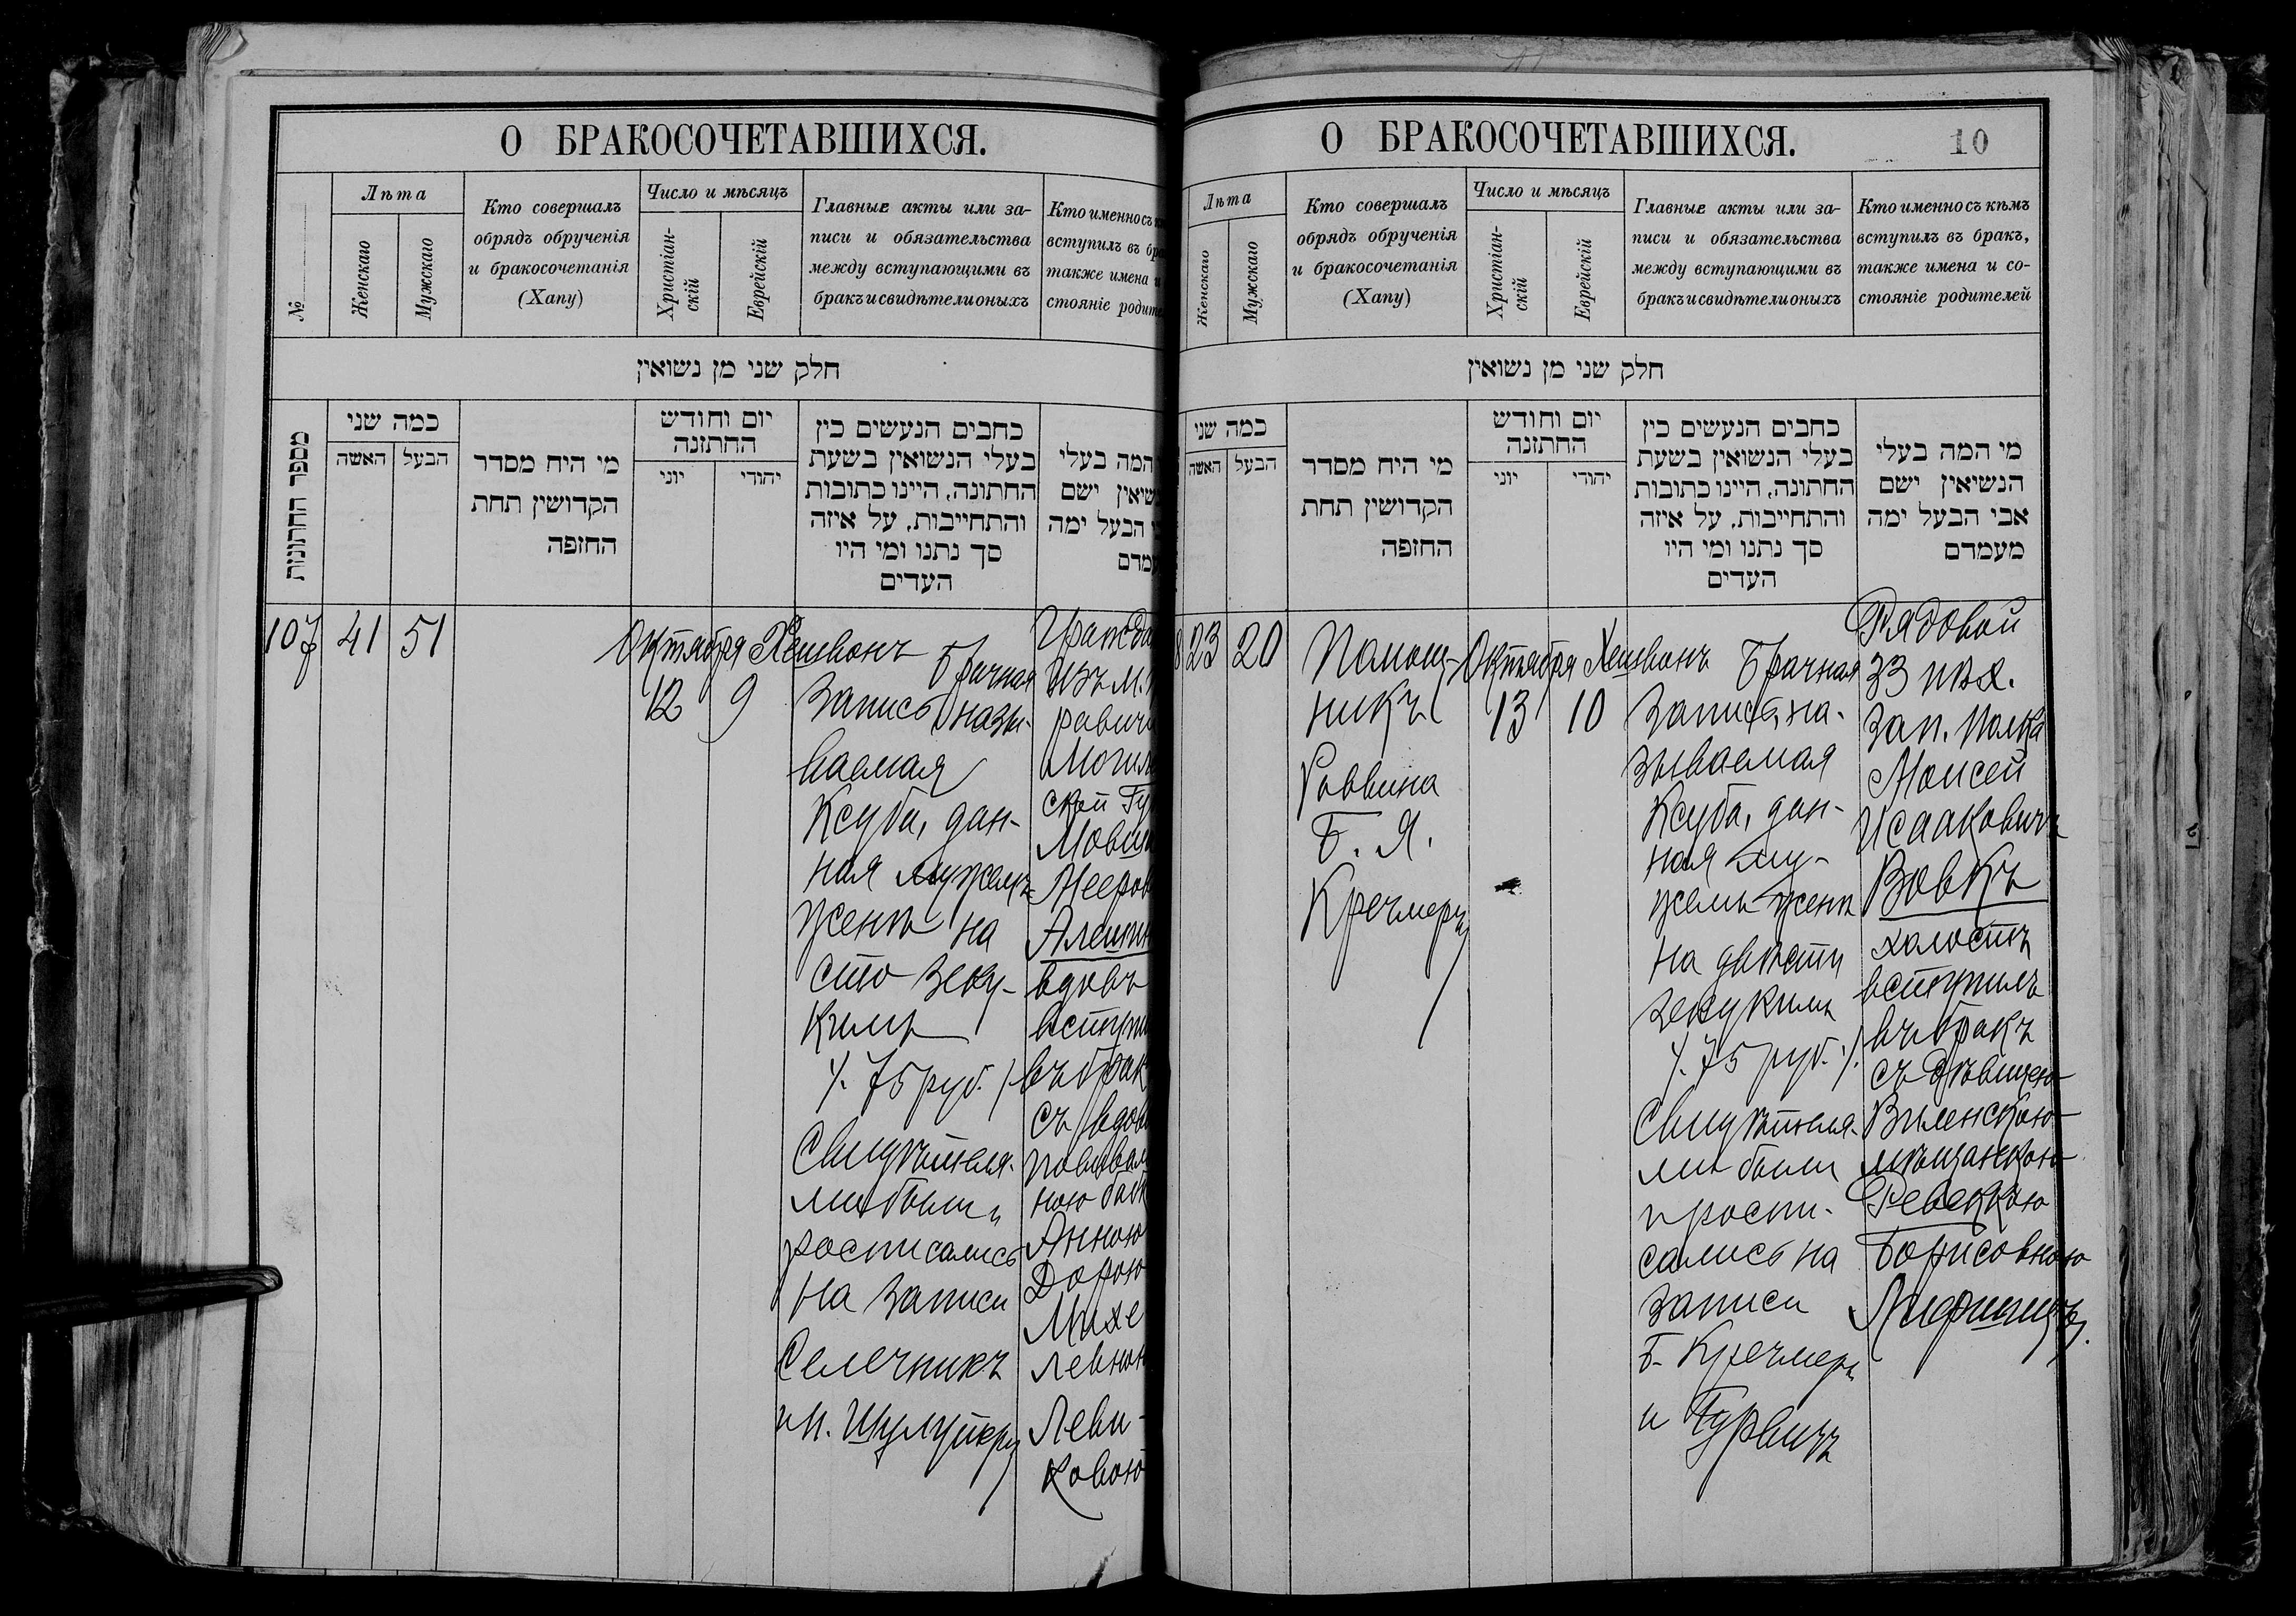 О БРАКОСОЧЕТАВШИХСЯ.
№
Лѣта
Женскаго
Мужскаго
Кто совершалъ
обрядъ обрученія
и бракосочетанія
(Хапу)
Число и мѣсяцъ
Христіан-
скій
Еврейскій
Главные акты или за-
писи и обязательства
между вступающими въ
бракъ и свидѣтели оныхъ
Кто именно съ
вступилъ въ бр
также имена и
стояніе родит
חלק שני מן נשואין
מספר החתונות
כמה שני
האשה
הבעל
מי היח מסדר
הקדושין תחת
החופה
יום וחודש
החתונה
יוני
יהודי
כחבים הנעשים כין
בעלי הנשואין בשעת
החתונה, היינו כתובות
והתחייבות, על איזה
סך נתנו ומי היו
העדים
המה בעלי
שיאין ישם
הבעל ימה
עמדם
107
41
51
Октября
12
Хешвонъ
9
Брачная
Запись назы-
ваемая
Ксуба, дан-
ная мужемъ
женѣ на
сто зеку-
кимъ
/. 75 руб. /
Свидѣтеля-
ми были и
росписались
на записи
Селечникъ
и М. Шулуперъ
Гражда
изъ м.
рович
Могил
ской Гу
Мовш
Мееров
Алешин
вдовъ
вступи
въ брак
съ вдов
повивал
ною баб
Анною
Дорою
Михе
левною
Леви-
ковою
О БРАКОСОЧЕТАВШИХСЯ.
10
Лѣта
Женскаго
Мужскаго
Кто совершалъ
обрядъ обрученія
и бракосочетанія
(Хапу)
Число и мѣсяцъ
Христіан-
скій
Еврейскій
Главные акты или за-
писи и обязательства
между вступающими въ
бракъ и свидѣтели оныхъ
Кто именно съ кѣмъ
вступилъ въ бракъ,
также имена и со-
стояніе родителей
חלק שני מן נשואין
כמה שני
האשה
הבעל
מי היח מסדר
הקדושין תחת
החופה
יום וחודש
החתונה
יוני
יהודי
כחבים הנעשים כין
בעלי הנשואין בשעת
החתונה, היינו כתובות
והתחייבות, על איזה
סך נתנו ומי היו
העדים
מי המה בעלי
הנשיאין ישם
אבי הבעל ימה
מעמדם
8
23
20
Помощ-
никъ
Раввина
Б. Я.
Кречмеръ
Октября
13
Хешвонъ
10
Брачная
Запись, на-
зываемая
Ксуба, дан-
ная му-
жемъ женѣ
на двѣсти
зекукимъ
/. 75 руб. /.
Свидѣтеля-
ми были
и роспи-
сались на
записи
Б. Кречмеръ
и Гурвичъ
Рядовой
33 пѣх.
Зап. Полка
Моисей
Исааковичъ
Вовкъ
холостъ
вступилъ
въ бракъ
съ дѣвицею
Виленскою
мѣщанкою
Ревеккою
Борисовною
Лифшицъ.